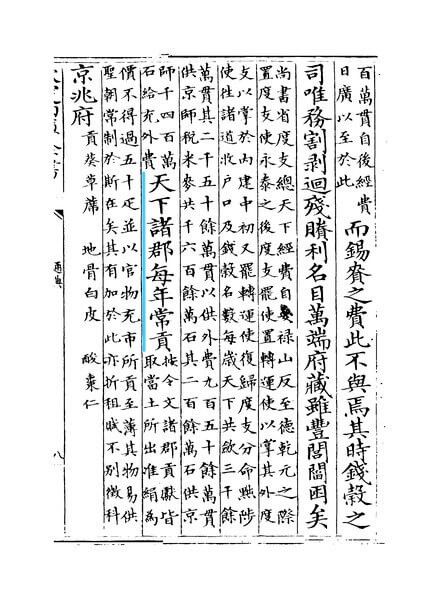 百萬貫自後經費
日廣以至於此
而錫賚之費此不與焉其時錢穀之
司唯務割剥迴殘賸利名目萬端府藏雖豐閭閻困矣
尚書省度支總天下經費自祿山反至德乾元之際
置度支使永泰之後度支罷使置轉運使以掌其外度
支以掌於内建中初又罷轉運使復歸度支分命黜陟
使往諸道收户口及錢穀名數每歲天下共斂三千餘
萬貫其二千五十餘萬貫以供外費九百五十餘萬貫
供京師稅米麥共千六百餘萬石其二百餘萬石供京
師千四百萬
石給充外費
天下諸郡每年常貢
按令文諸郡貢獻皆
取當土所出准絹為
價不得過五十疋並以官物充市所貢至薄其物易供
聖朝常制於斯在矣其有加於此亦折租賦不别徵科
京兆府
貢葵草蓆 地骨白皮 酸棗仁
通典
八